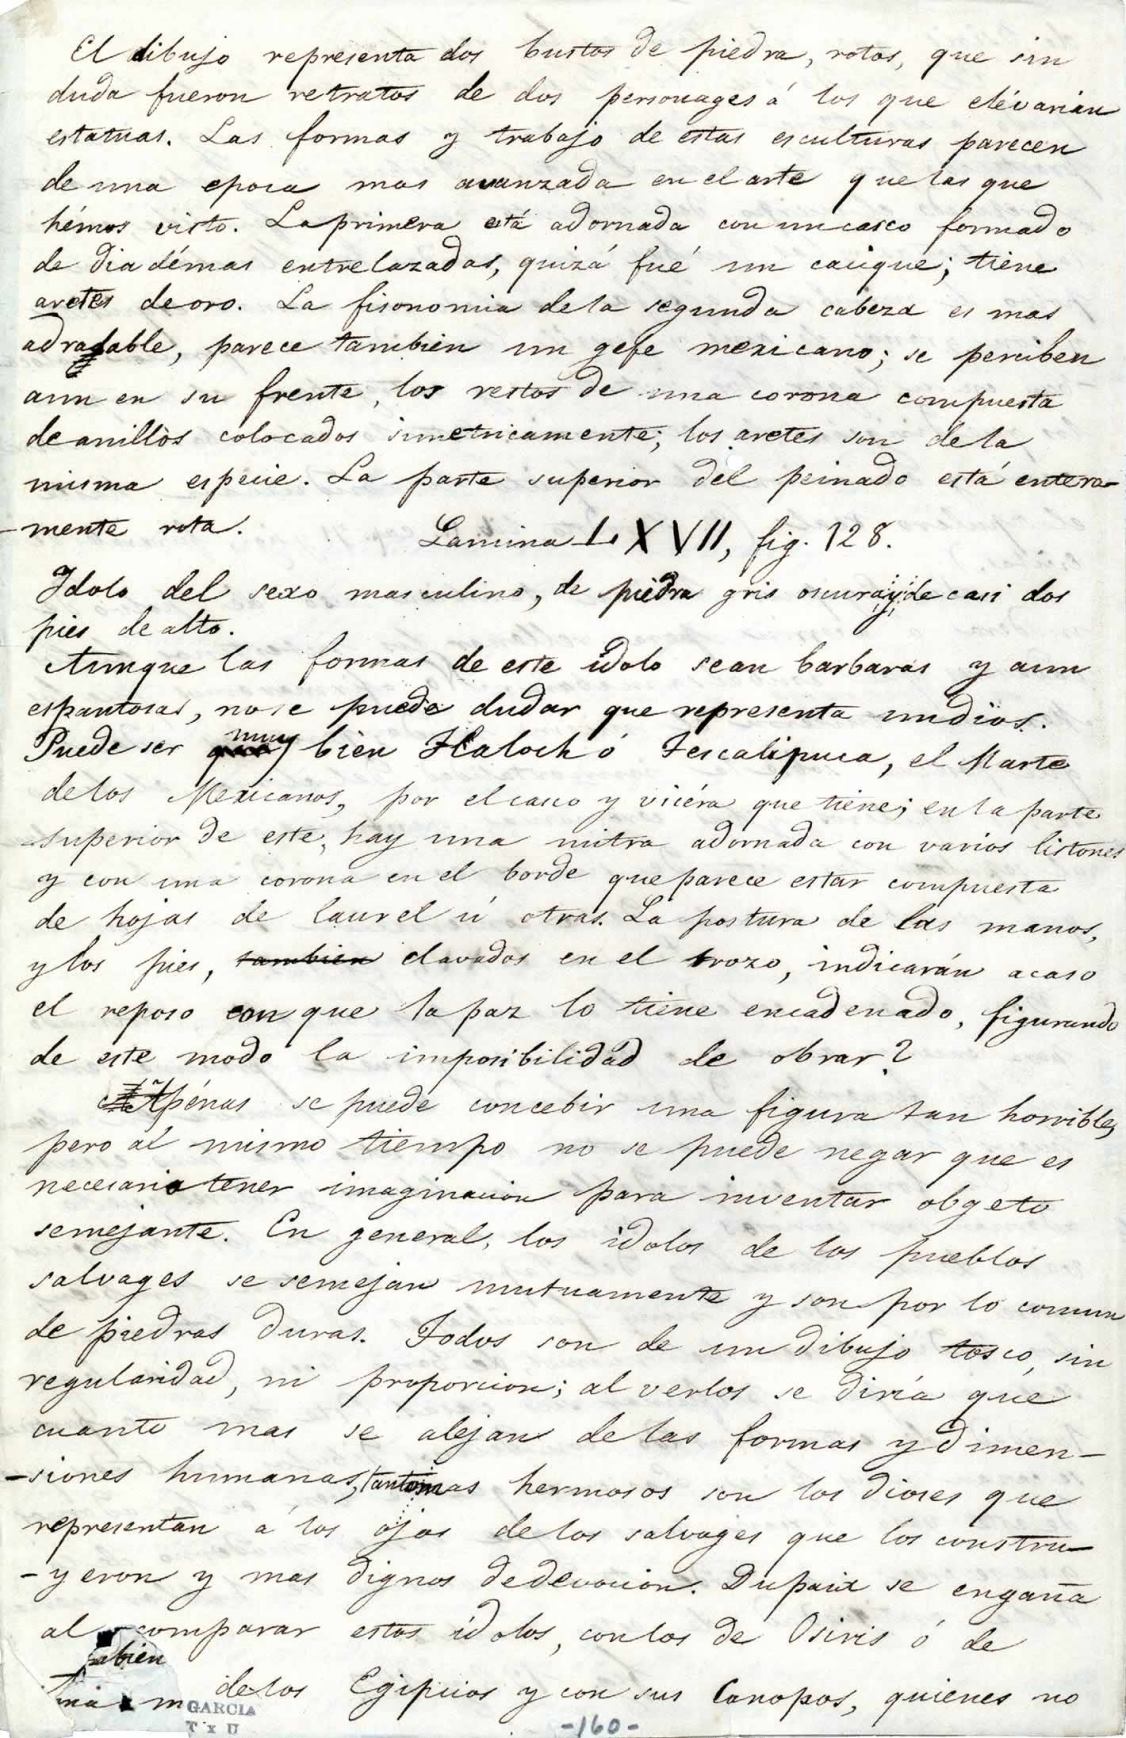 El dibujo representa dos bustos de piedra, rotos, que sin
duda fueron retratos de dos personages á los que elévarian
estatuas. Las formas y trabajo de estas esculturas parecen
de una epoca mas avanzada en el arte que las que
hémos visto. La primera está adornada con un casco formado
de diadémas entrelazadas, quizá fué un cacique; tiene
aretes de oro. La fisonomia de la segunda cabeza es mas
adradable, parece tambien un gefe mexicano; se perciben
aun en su frente, los restos de una corona compuesta
de anillos colocados simetricamente; los aretes son de la
misma especie. La parte superior del peinado está entera-
-mente rota.
Lamina LXVII, fig. 128.
Idolo del sexo masculino, de piedra gris oscura y de casi dos
pies de alto.
Aunque las formas de este idolo sean barbaras y aun
espantosas, no se puede dudar que representa un dios.
Puede ser muy bien Haloch ó Tescalipuca, el Marte
de los Mexicanos, por el casco y viséra que tiene; en la parte
superior de este, hay una mitra adornada con varios listones
y con una corona en el borde que parece estar compuesta
de hojas de laurel ú otras. La postura de las manos,
y los pies, tambien clavados en el trozo, indicarán acaso
el reposo con que la paz lo tiene encadenado, figurando
de este modo la imposibilidád de obrar?
Apénas se puede concebir una figura tan horrible,
pero al mismo tiempo no se puede negar que es
necesario tener imaginacion para inventar obgeto
semejante. En general, los idolos de los pueblos
salvages se semejan mutuamente y son por lo comun
de piedras duras. Todos son de un dibujo tosco, sin
regularidad, ni proporcion; al verlos se diría que
cuanto mas se alejan de las formas y dimen-
-siones humanas, tanto mas hermosos son los dioses que
representan á los ojos de los salvages que los constru-
-yeron y mas dignos de devocion. Dupaix se engaña
al comparar estos idolos, con los de Osiris ó de
de los Egipcios y con sus Canopos, quienes no
GARCIA
T x U
-160-